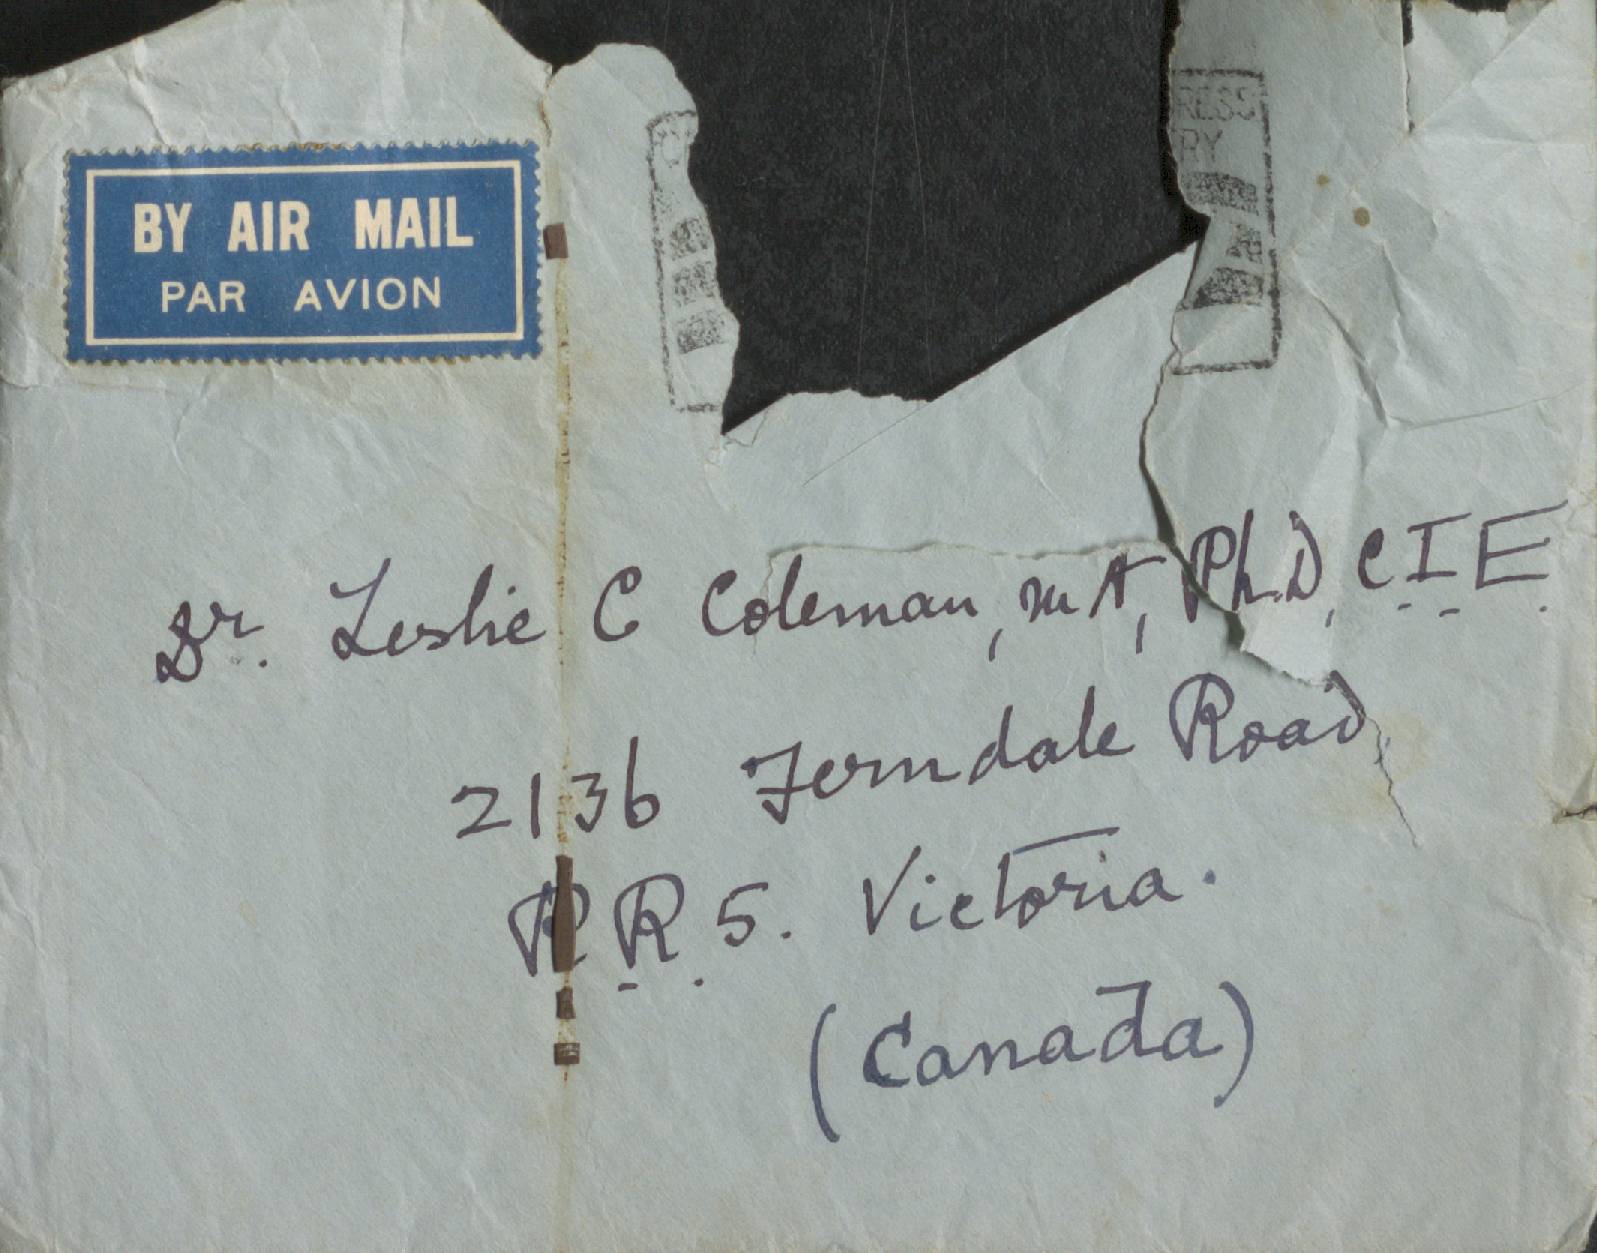 BY AIR MAIL
PAR AVION
RESS
RY
Dr. Leslie C Coleman, M A, Ph.D, C.I.E.
2136 Ferndale Road,
R.R.5. Victoria.
(Canada)